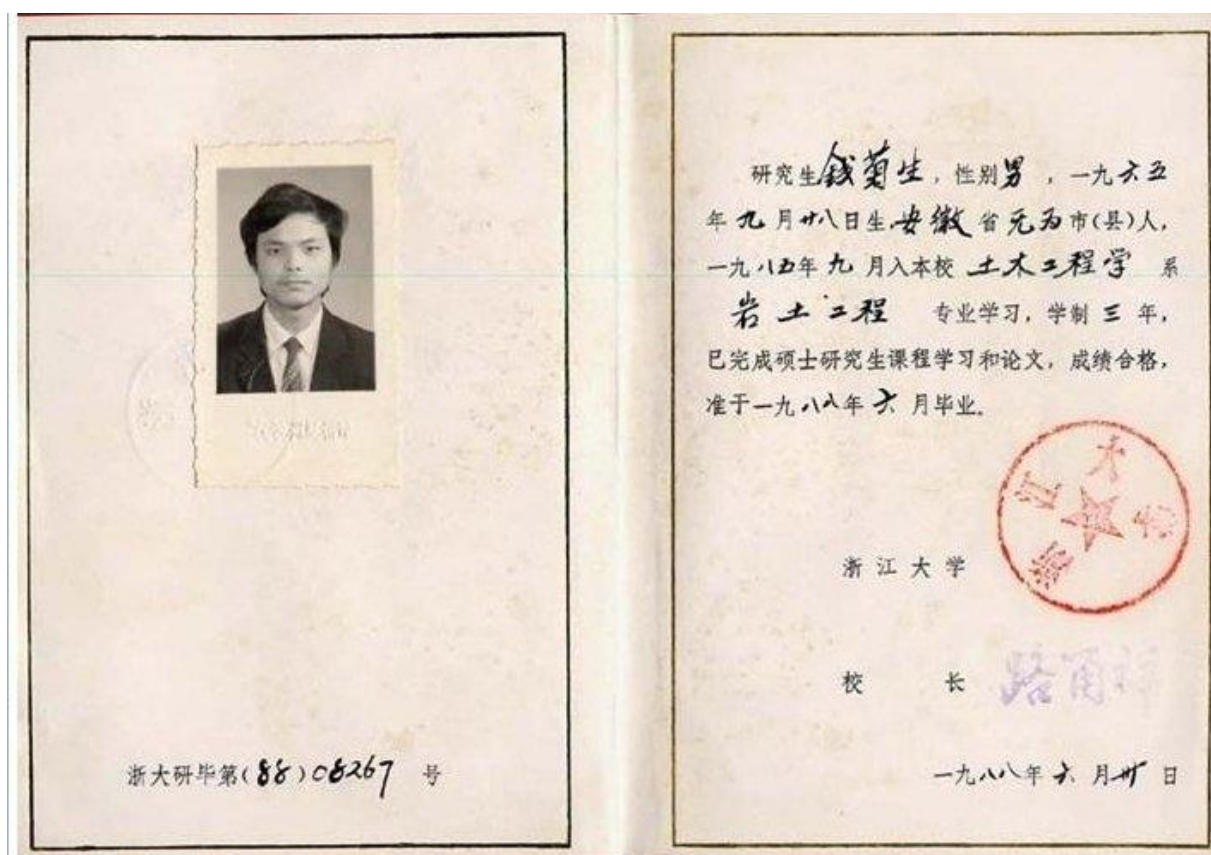 浙大研毕第(88)08267 号
研究生钱菊生，性别男，一九六五
年九月廿八日生安徽省无为市(县)人，
一九八五年九月入本校 土木工程学 系
岩土工程 专业学习，学制三年，
已完成硕士研究生课程学习和论文，成绩合格，
准于一九八八年六月毕业。
浙江大学
浙江大学
校 长 路甬祥
一九八八年六月卅日